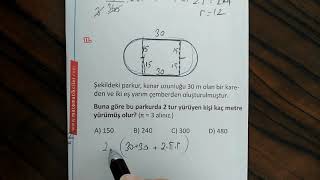 r=12
30
15
15
15
15
30
Şekildeki parkur, kenar uzunluğu 30 m olan bir kare-
den ve iki eş yarım çemberden oluşturulmuştur.
Buna göre bu parkurda 2 tur yürüyen kişi kaç metre
yürümüş olur? (π = 3 alınız.)
A) 150 B) 240 C) 300 D) 480